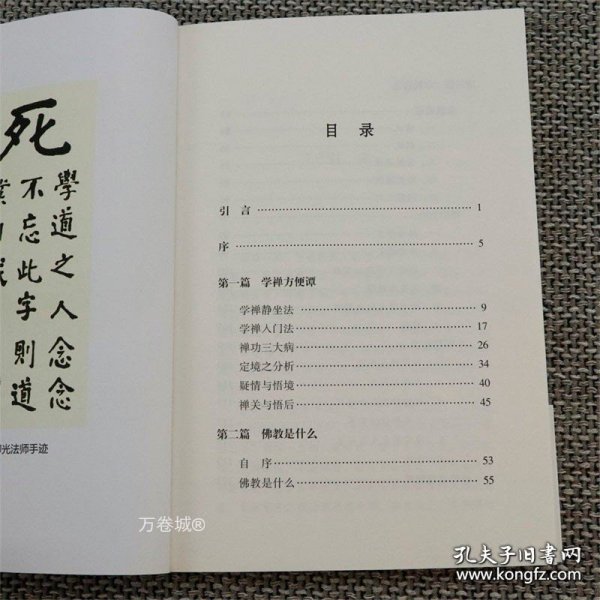 死
學道之人念念
不忘此字則道
業自成
光法师手迹
目 录
引 言 1
序 5
第一篇 学禅方便谭
学禅静坐法 9
学禅入门法 17
禅功三大病 26
定境之分析 34
疑情与悟境 40
禅关与悟后 45
第二篇 佛教是什么
自 序 53
佛教是什么 55
万卷城®
孔夫子旧书网
www.kongfz.com